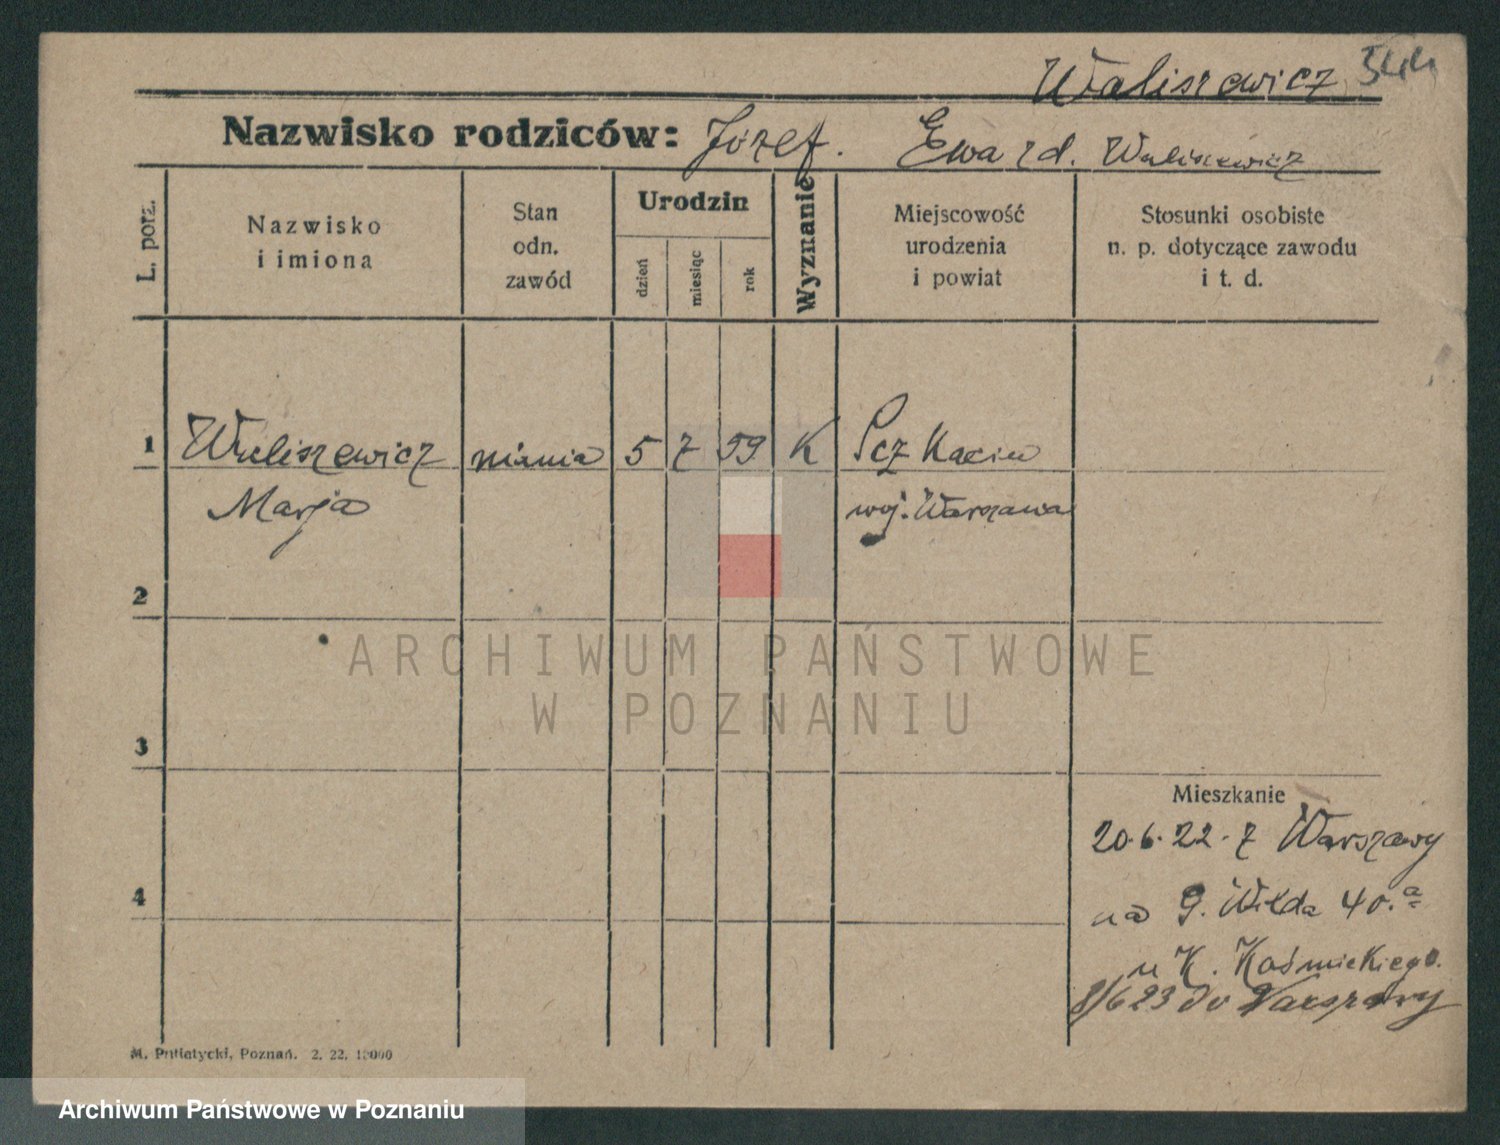 Waliszewicz 544
Nazwisko rodziców: Józef. Ewa z d. Waliszewicz
L. porz.
Nazwisko
i imiona
Stan
odn.
zawód
Urodzin
dzień
miesiąc
rok
Wyznanie
Miejscowość
urodzenia
i powiat
Stosunki osobiste
n. p. dotyczące zawodu
i t. d.
1 Waliszewicz niania 5 7 99 K
Marja woj. Warszawa
2
ARCHIWUM PAŃSTWOWE
W POZNANIU
3
Mieszkanie
20.6.22. z Warszawy
4
na G. Wilda 40.a
u K. Kośmickiego.
8/6 23 do Warszawy
M. Putiatycki, Poznań. 2. 22. 15000
Archiwum Państwowe w Poznaniu